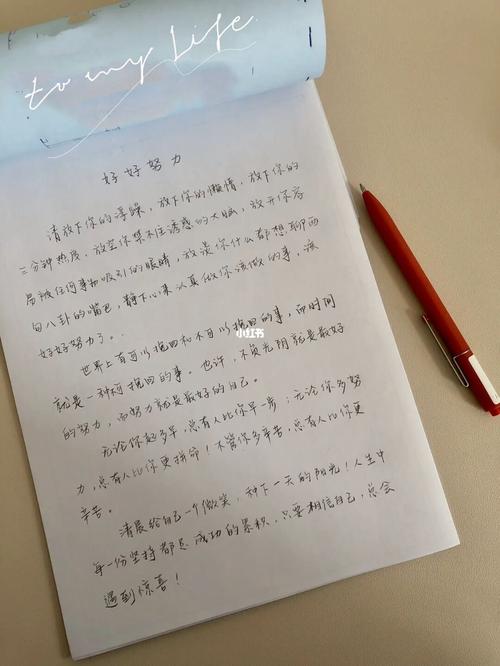 to my life
好好努力
请放下你的浮躁，放下你的懒惰，放下你的
三分钟热度，放空你禁不住诱惑的大脑，放开你容
易被任何事物吸引的眼睛，放淡你什么都想聊两
句八卦的嘴巴，静下心来认真做你该做的事，该
好好努力了。
世界上有可以挽回和不可以挽回的事，而时间
就是一种不可挽回的事。也许，不负光阴就是最好
的努力，而努力就是最好的自己。
无论你起多早，总有人比你早一步；无论你多努
力，总有人比你更拼命！不管你多辛苦，总有人比你更
辛苦。
清晨给自己一个微笑，种下一天的阳光！人生中
每一份坚持都是成功的累积，只要相信自己，总会
遇到惊喜！
小红书